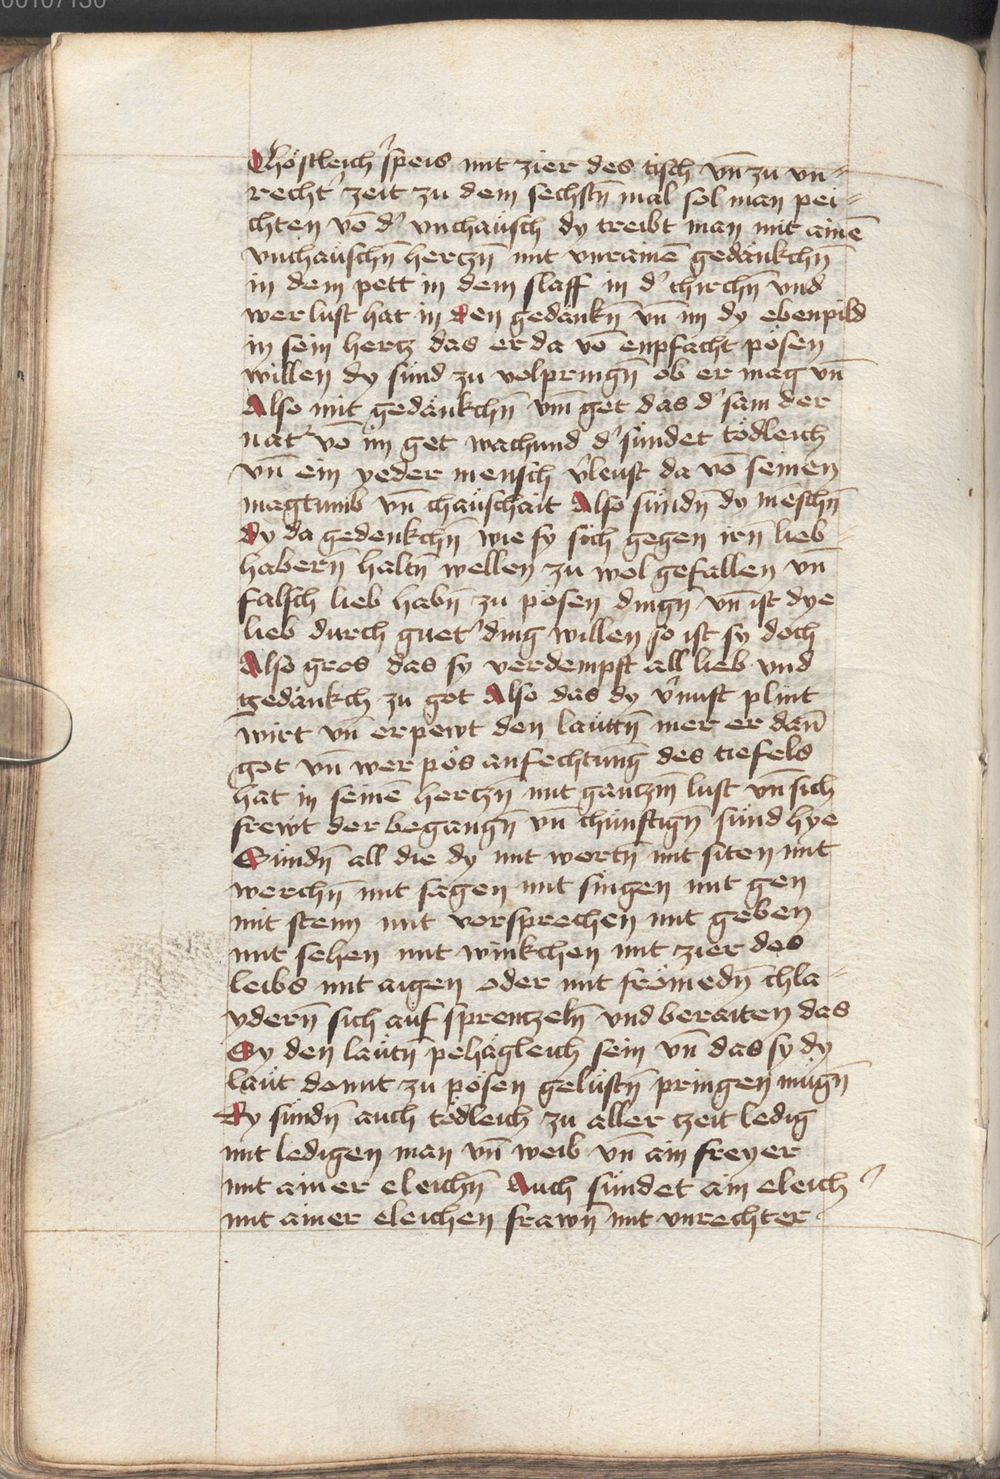 00107130
Chöstleich speis mit zier des tisch vn̄ zu vn-
recht' zeit zu dem sechstn̄ mal sol man pei-
chten vō d' vnchäusch dy treibt man mit ainē
vnchäuschn̄ hertzn̄ mit vnrainē gedänkchn̄
in dem pett in dem slaff in d' chirchn̄ vnd
wer lust hat in den gedänkn̄ vn̄ im dy ebenpild
in sein hertz das er da vō enpfächt pösen
willen dy sünd zu volpringn̄ ob er mag vn̄
Also mit gedänkchn̄ vm̄ get das d' sam der
nat' vō im get wachund d' sündet tödleich
vn̄ ein yeder mensch v'leust da vō seinen
magtumb vn̄ chäuschait Also sündn̄ dy mēschn̄
Dy da gedenkchn̄ wie sy sich gegen irn̄ lieb-
habern̄ haltn̄ wellen zu wolgefallen vn̄
falsch lieb habn̄ zu pösen dingn̄ vn̄ ist dye
lieb durch guet' ding willen so ist sy doch
Also gros das sy verdempft all lieb vnd
gedänkch zu got Also das dy v'nust plint
wirt vn̄ erpewt den läuttn̄ mer er dan̄
got vn̄ wer pös anfechtung des tiefels
hat in seinē hertzn̄ mit gantzm̄ lust vn̄ sich
frewt der begangn̄ vn̄ chünftign̄ sünd hye
Sündn̄ all die dy mit wortn̄ mit siten mit
werchn̄ mit sagen mit singen mit gen
mit stenn mit vorsprechen mit geben
mit sehen mit winkchen mit zier des
leibs mit aigen oder mit frömedn̄ chla-
ydern̄ sich auf sprentzeln̄ vnd beraiten das
Sy den läutn̄ pehägleich sein vn̄ das sy dy
läut domit zu pösen gelüstn̄ pringen mügn̄
Dy sündn̄ auch tödleich zu aller tzeit ledig
mit ledigen man vn̄ weib vn̄ ain freyer
mit ainer eleichn̄ Auch sündet ain eleich'
mit ainer eleichen frawn̄ mit vnrechter